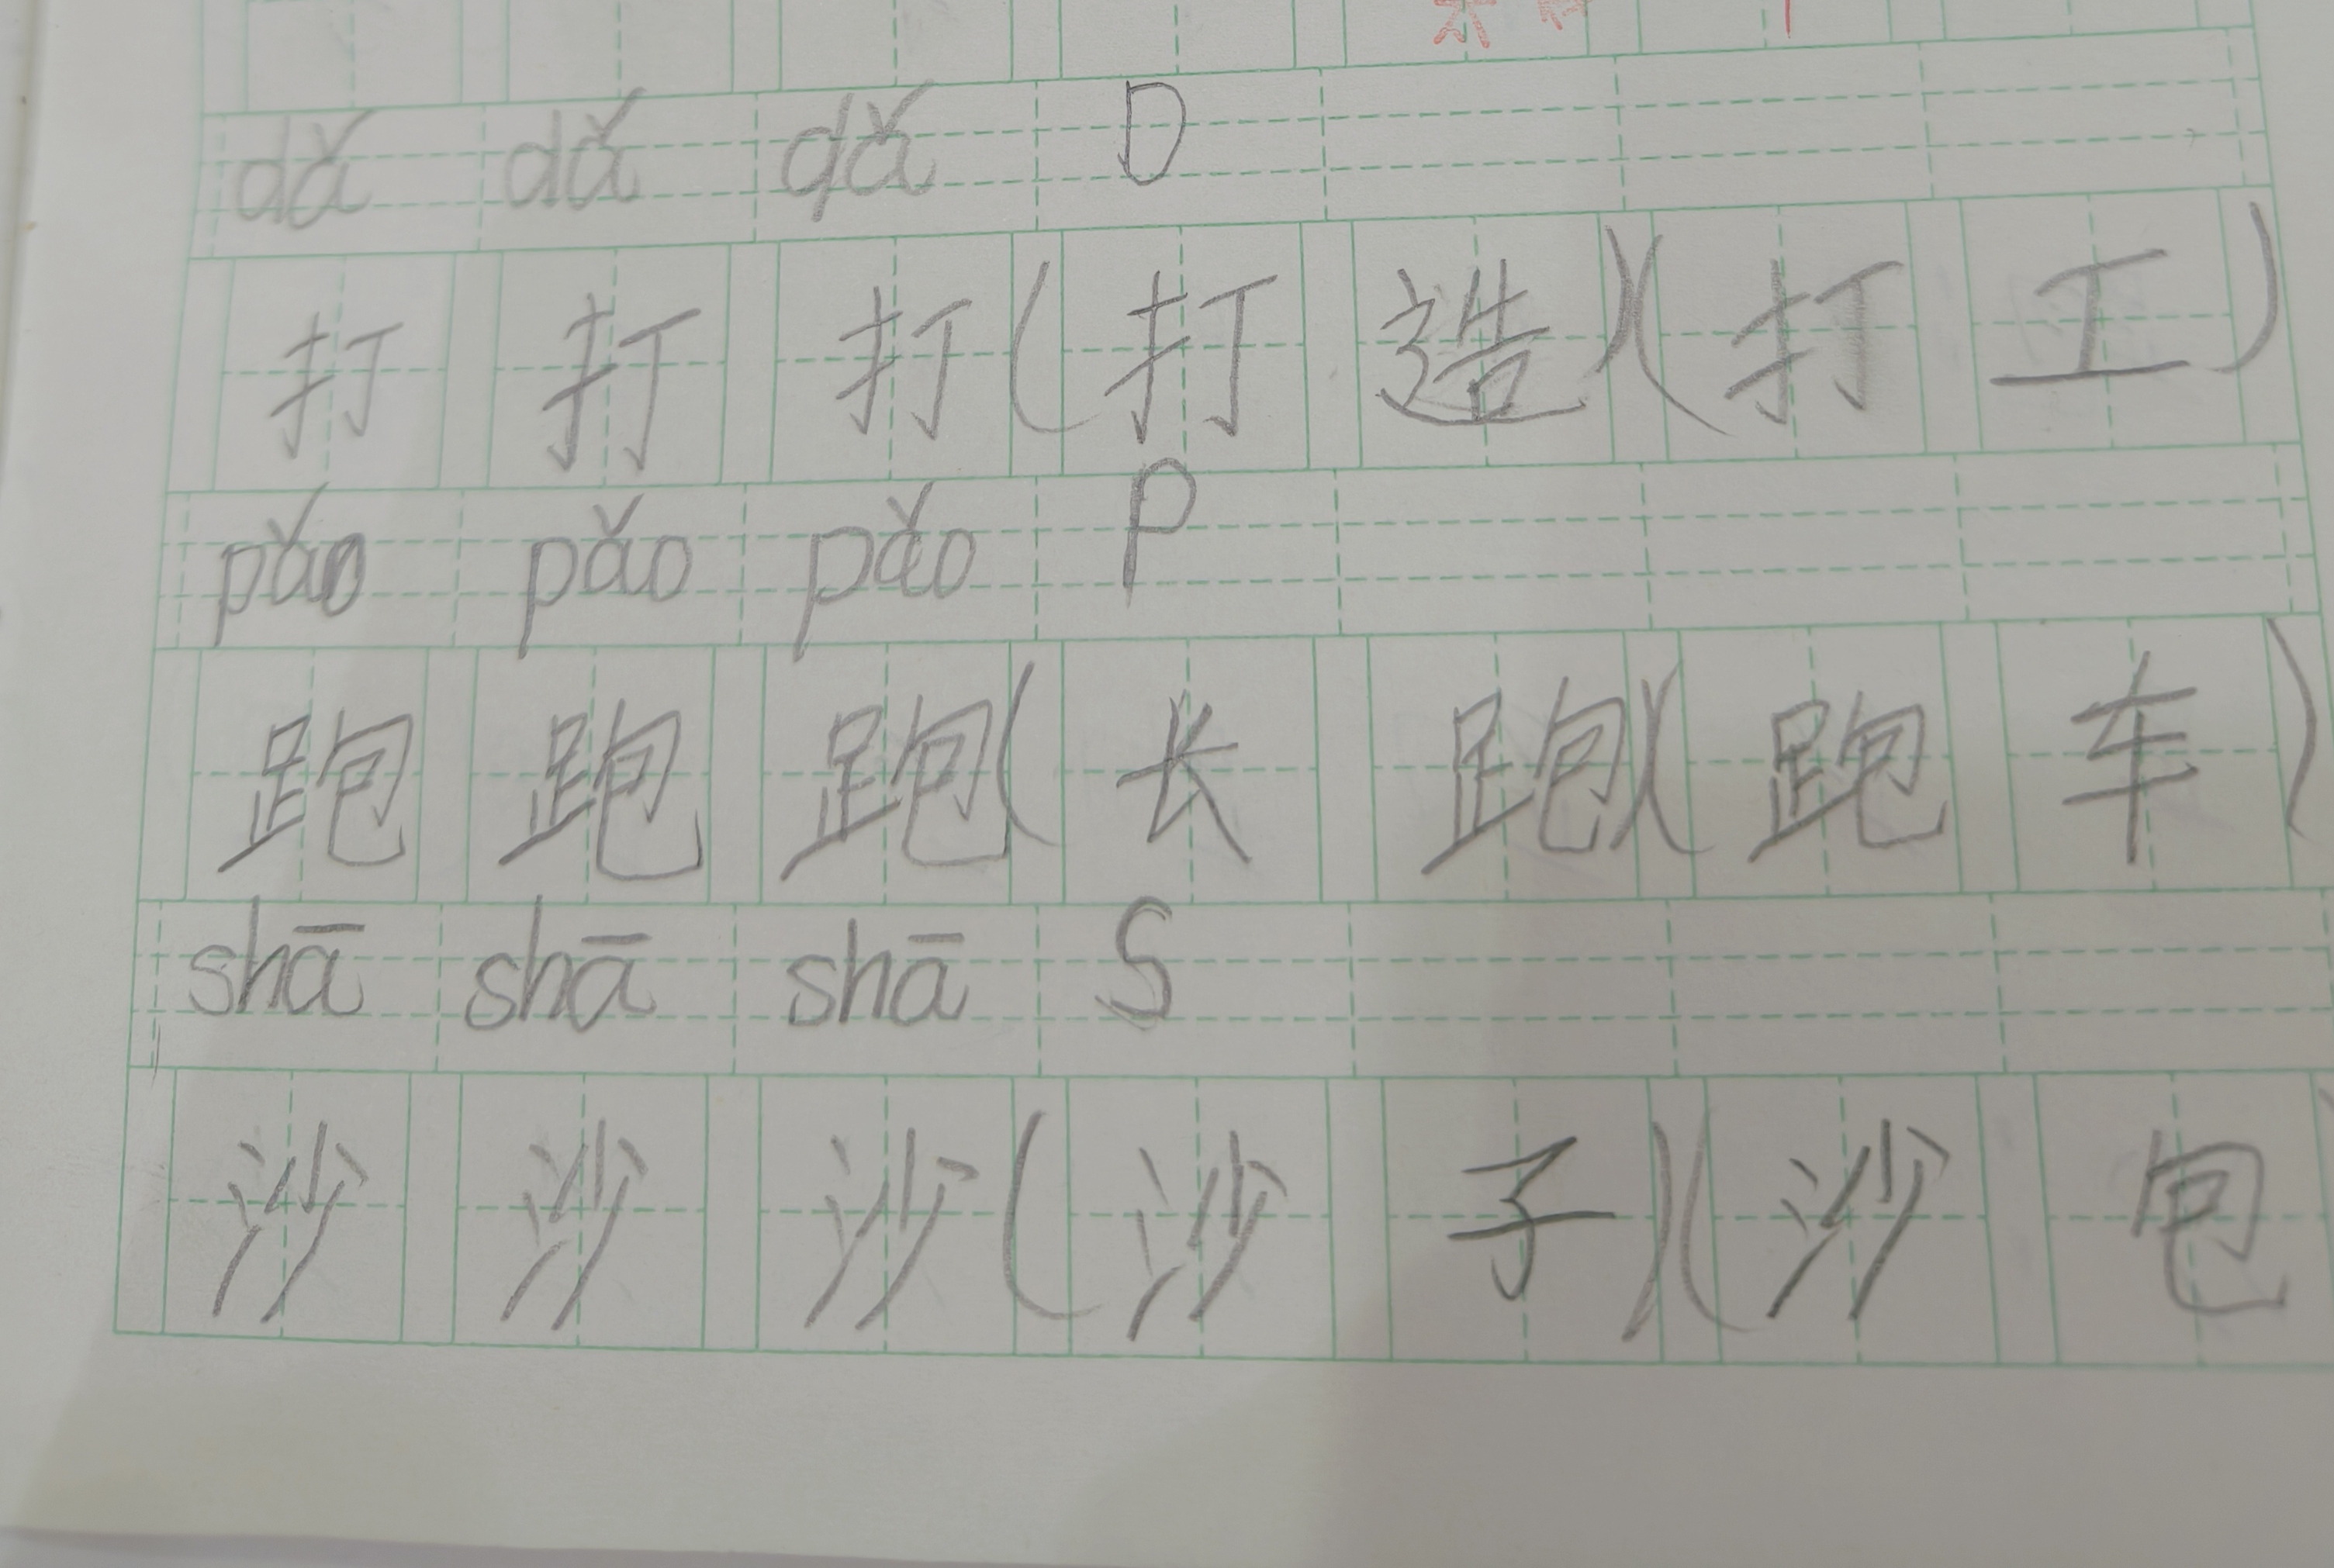 dǎ dǎ dǎ D
打 打 打(打 造)(打 工)
pǎo pǎo pǎo P
跑 跑 跑(长 跑)(跑 车)
shā shā shā S
沙 沙 沙(沙 子)(沙 包